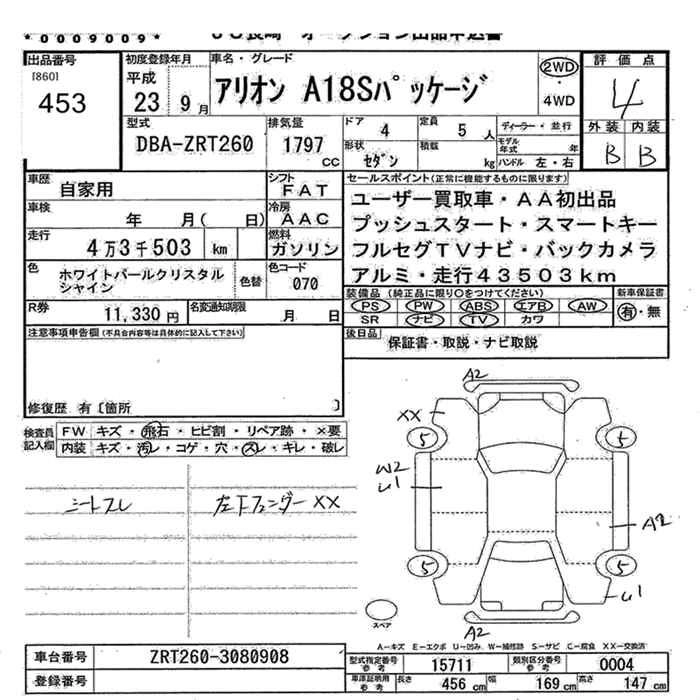 *0009009*
出品番号
[860]
453
初度登録年月
平成
23 9月
車名・グレード
アリオン A18Sパッケージ
2WD
4WD
評価点
4
外装 内装
B B
型式
DBA-ZRT260
排気量
1797
CC
ドア
4
定員
5 人
形状
セダン
積載
kg
ディーラー・並行
モデル年式 年
ハンドル 左・右
車歴
自家用
シフト
FAT
車検
年 月( 日)
冷房
AAC
走行
4万3千503 km
燃料
ガソリン
色
ホワイトパールクリスタル
シャイン
色替
色コード
070
R券
11,330円
名変通知期限
月 日
セールスポイント(正常に機能するものに限ります)
ユーザー買取車・AA初出品
プッシュスタート・スマートキー
フルセグTVナビ・バックカメラ
アルミ・走行43503km
装備品(純正品に限り○をつけてください)
PS PW ABS エアB AW
SR ナビ TV カワ
新車保証書
有・無
後日品
保証書・取説・ナビ取説
注意事項申告欄(不具合内容等は具体的に記入して下さい)
修復歴 有〔箇所 〕
検査員
記入欄
FW キズ・飛石・ヒビ割・リペア跡・×要
内装 キズ・汚レ・コゲ・穴・スレ・キレ・破レ
シートスレ
左Fフェンダー XX
A2
XX
5
5
W2
U1
A2
5
5
U1
A2
スペア
A―キズ E―エクボ U―凹み W―補修跡 S―サビ C―腐食 XX―交換済
車台番号
ZRT260-3080908
登録番号
型式指定番号
参考
15711
類別区分番号
参考
0004
車庫証明用
参考
長さ 456 cm
幅 169 cm
高さ 147 cm